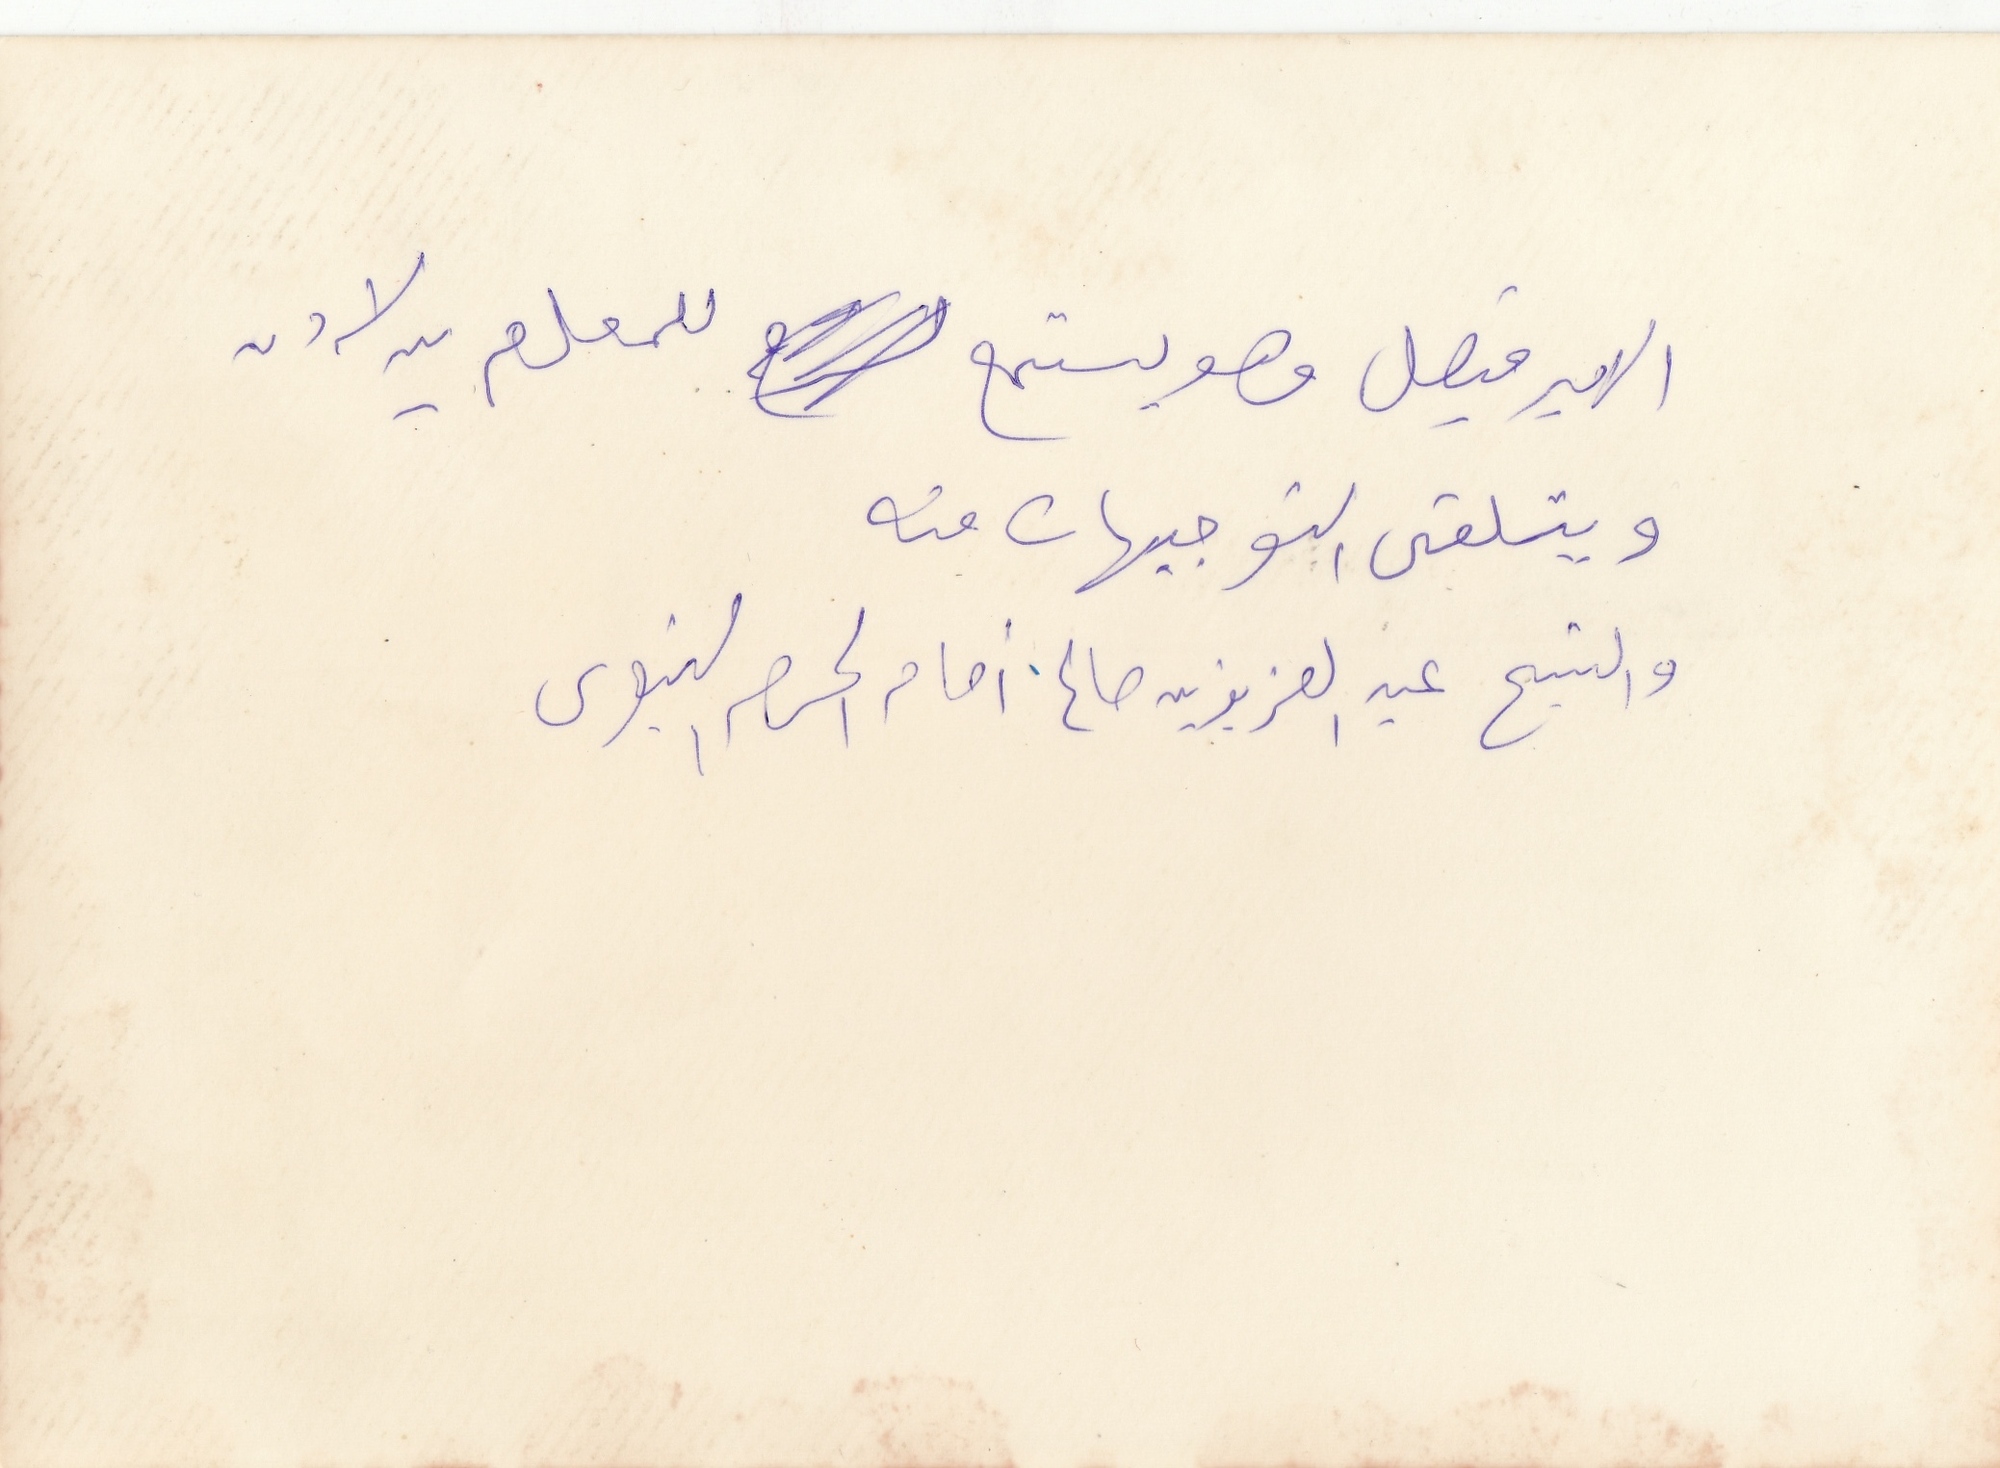 الامير فيصل وهو يستمع للمعلم بن لادن
ويتلقى التوجيهات منه
والشيخ عبد العزيز بن صالح امام الحرم النبوى